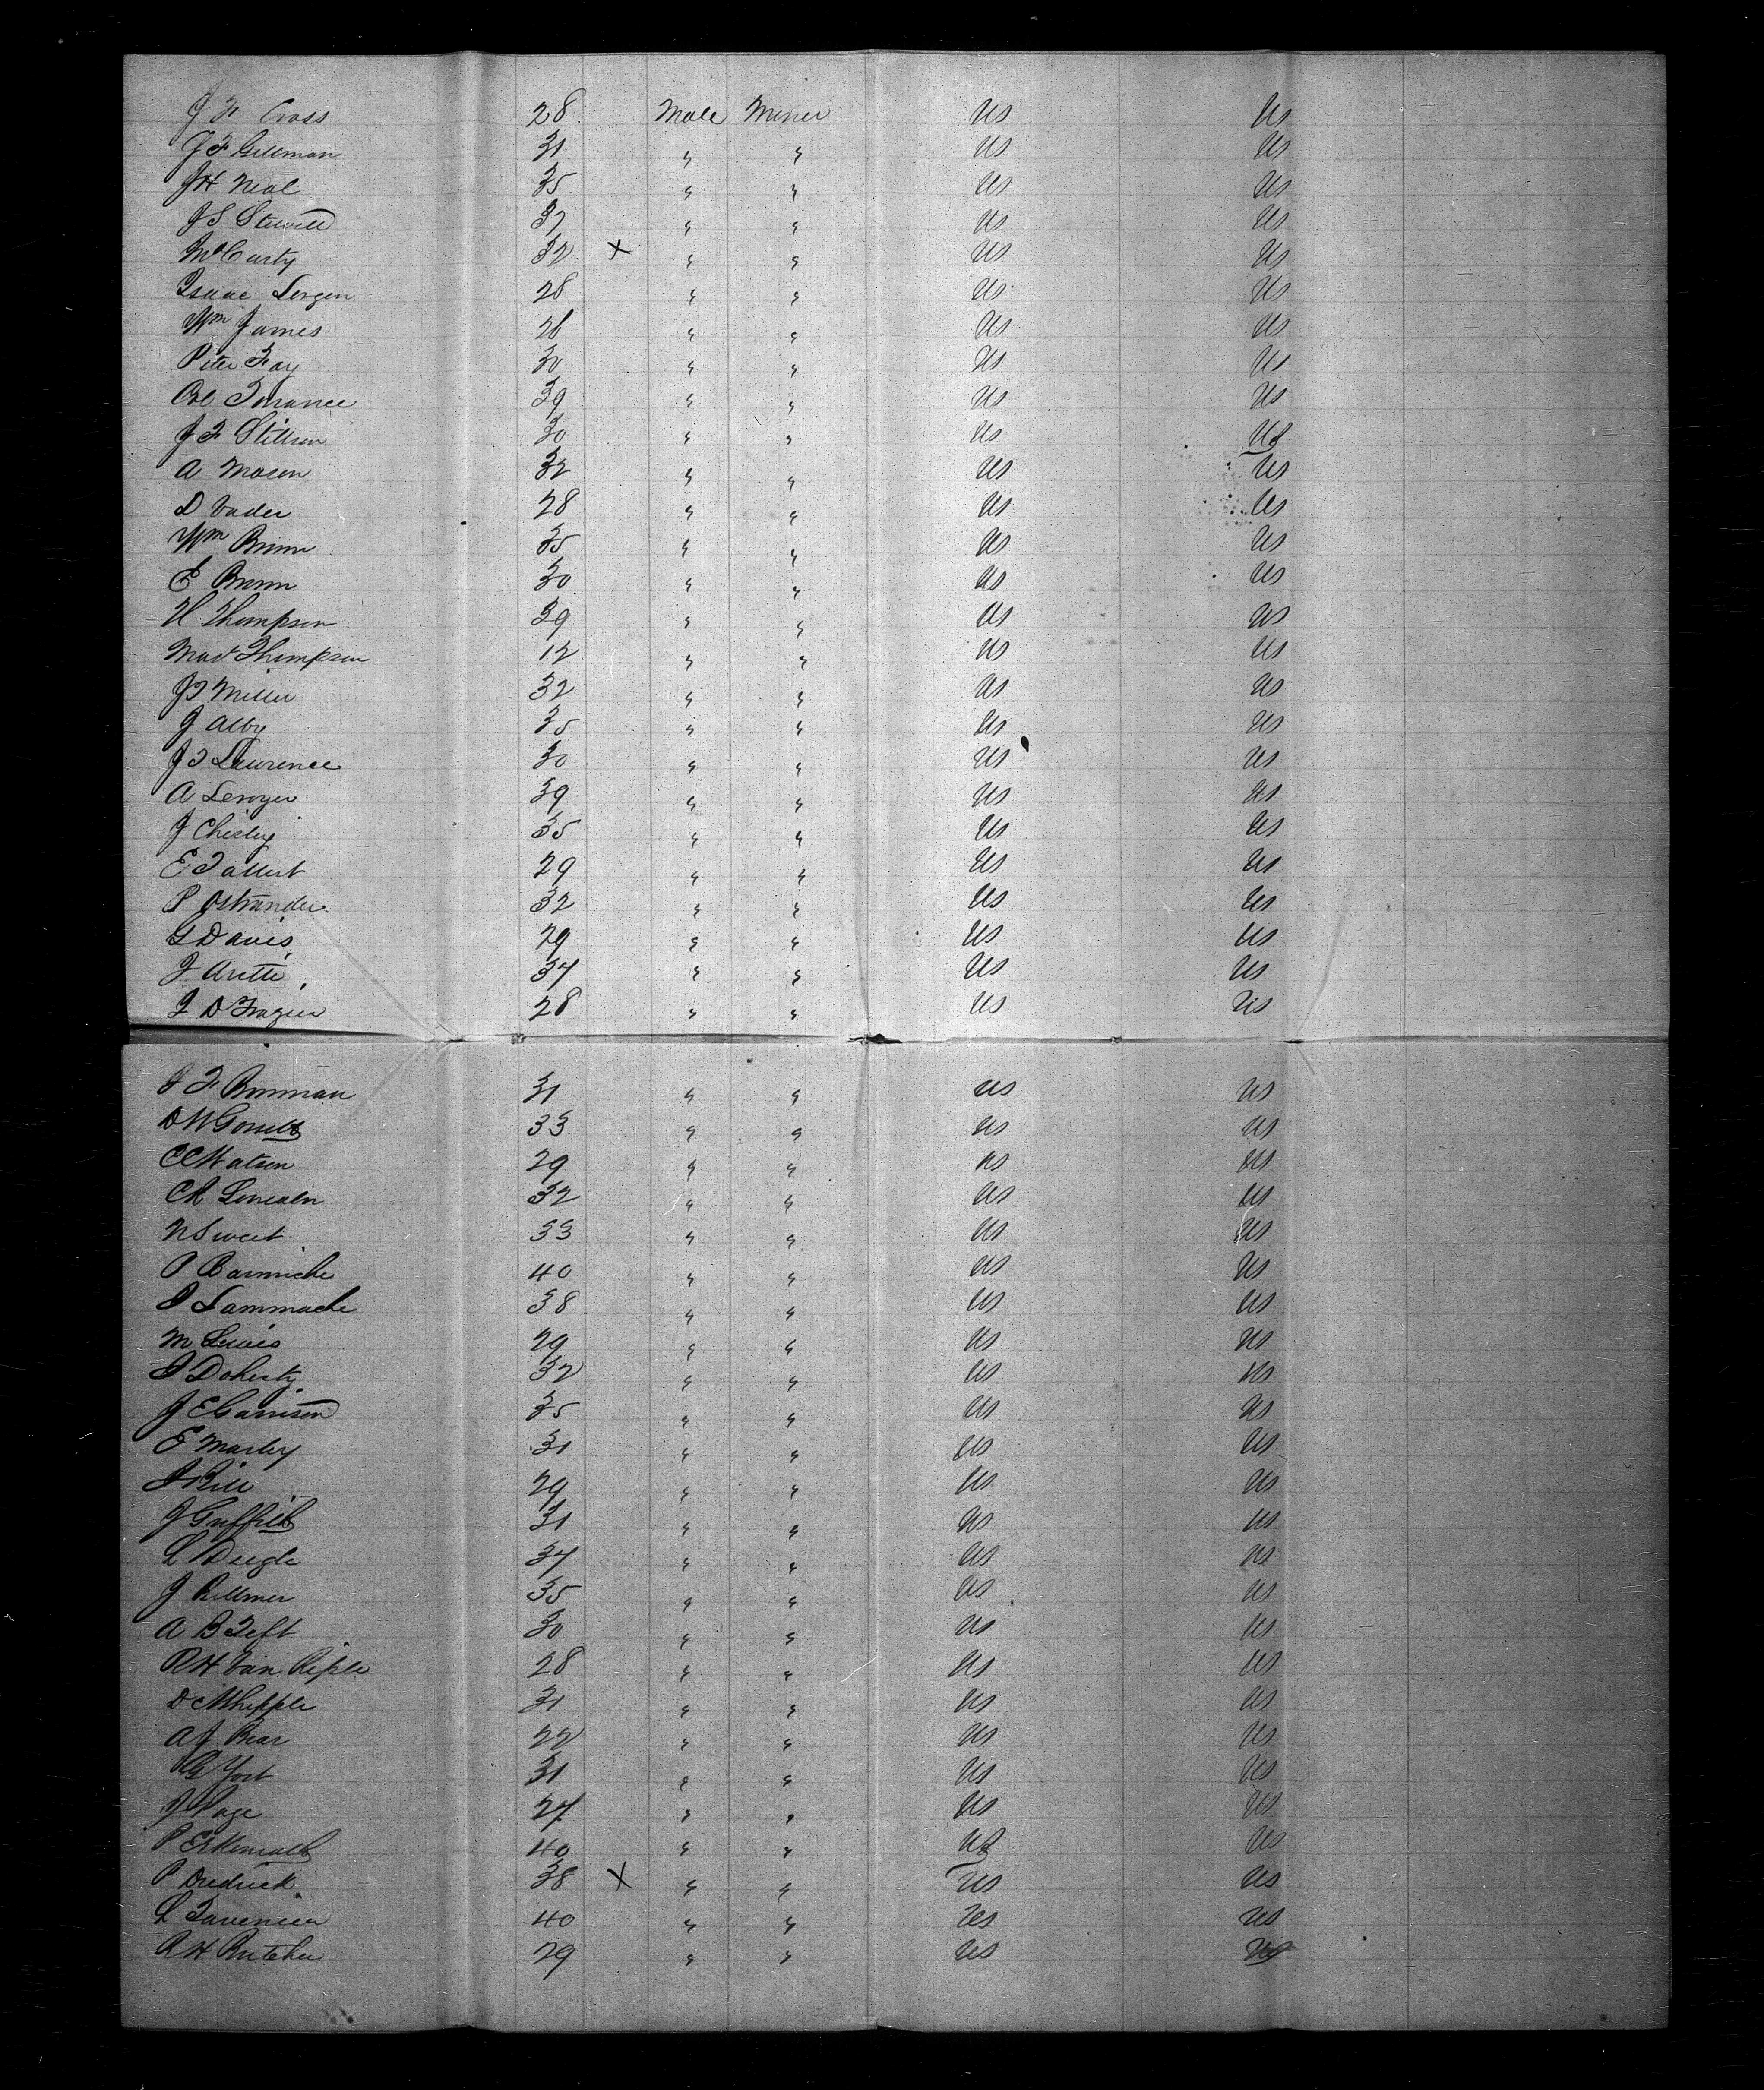 J F Cross 28 Male Miner US US
J F Gillman 31 " " US US
J H Neal 35 " " US US
J S Stewell 37 " " US US
McCarty 32 X " " US US
Isaac Sergen 28 " " US US
Wm James 26 " " US US
Peter Fay 30 " " US US
Col Torrance 39 " " US US
J F Stillson 30 " " US US
A Mason 32 " " US US
D Vader 28 " " US US
Wm Brown 35 " " US US
E Brown 30 " " US US
H. Thompson 39 " " US US
Mast Thompson 12 " " US US
J T Miller 32 " " US US
J Alby 35 " " US US
J T Lawrence 30 " " US US
A Leroyer 39 " " US US
J Chisley 35 " " US US
E Talbert 29 " " US US
P Ostrander 32 " " US US
G Davis 29 " " US US
J Arette 34 " " US US
J D Frazier 28 " " US US
J F Bowman 31 " " US US
D W Gould 33 " " US US
C C Watson 29 " " US US
C R Lincoln 32 " " US US
N Sweet 33 " " US US
P Barmiche 40 " " US US
J Lammache 38 " " US US
M Lewis 29 " " US US
J Doherty 32 " " US US
J E Garrison 35 " " US US
E Marley 31 " " US US
J Bill 29 " " US US
J Griffith 31 " " US US
L Deegle 34 " " US US
J Rillmer 35 " " US US
A B Teft 30 " " US US
R H Van Riple 28 " " US US
D C Whipple 31 " " US US
A J Bear 22 " " US US
G Yost 31 " " US US
J Page 24 " " US US
P 40 " " US US
P Dedrick 38 X " " US US
L Tavenier 40 " " US US
R H Butcher 29 " " US US